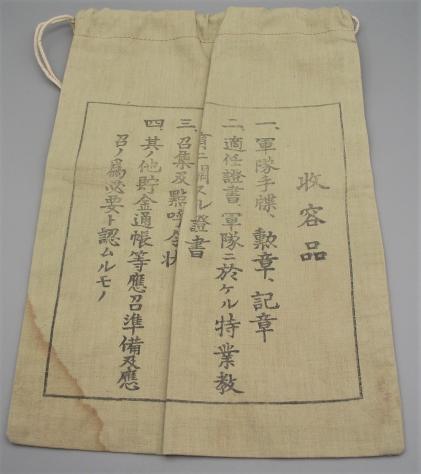 收容品
一、軍隊手牒、勲章、記章
二、適任證書、軍隊ニ於ケル特業教
育ニ關スル證書
三、召集及點呼令状
四、其ノ他貯金通帳等應召準備及應
召ノ爲必要ト認ムルモノ